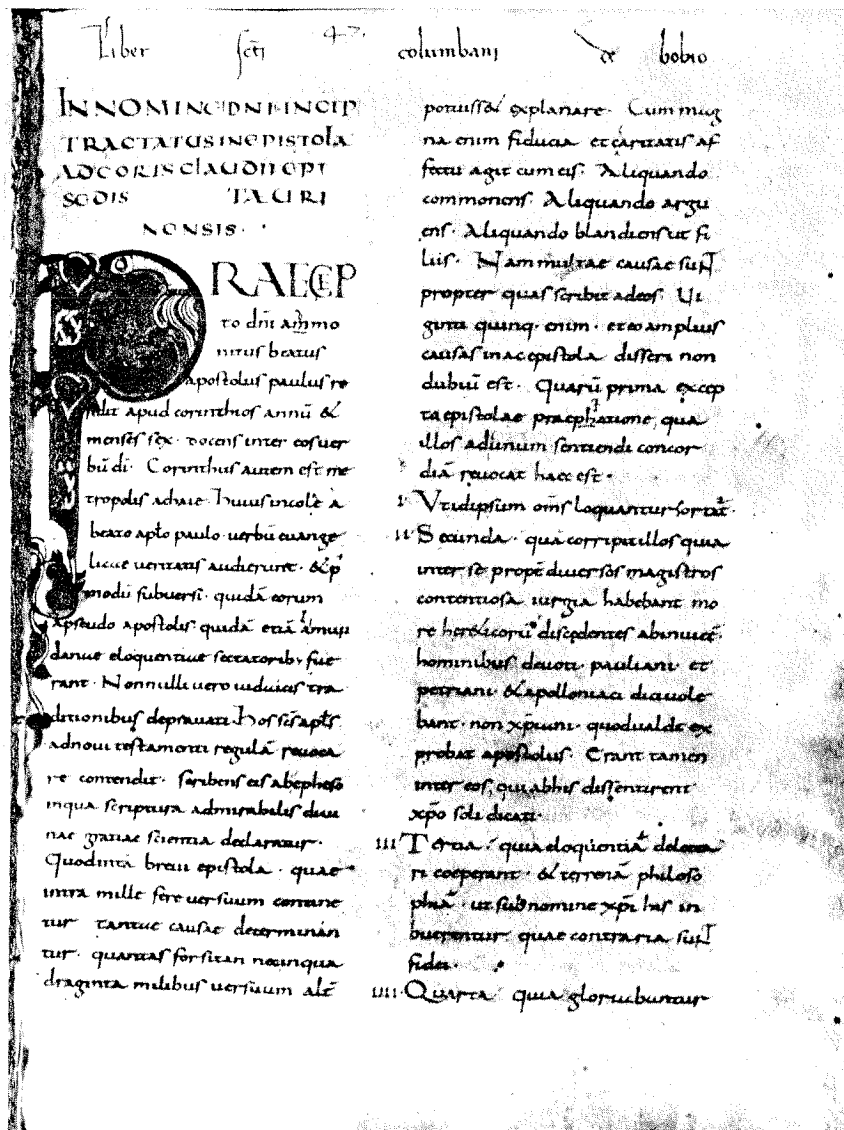 Liber sc̄ti 47. columbani de bobio
IN NOMINE DN̄I INCIP
TRACTATUS IN EPISTOLA
AD CORIS CLAUDII EPI
SCOIS TAURI
NENSIS
PRAECEP
to dn̄i ammo
nitus beatus
apostolus paulus re
sedit apud corinthios annū &
menses sex · docens inter eos uer
bū dī · Corinthus autem est me
tropolis achaie · huius incole a
beato aplo paulo · uerbū euange
licae ueritatis audierunt · & p
modū subuersi · quidā eorum
a pseudo apostolis quidā etiā a mun
danae eloquentiae sectatorib; fue
rant · Nonnulli uero iudaicis tra
ditionibus deprauati hos scs apls
ad noui testamenti regulā reuoca
re contendit · scribens eis ab epheso
in qua scriptura admirabilis diui
nae gratiae scientia declaratur ·
Quod in ta breui epistola · quae
intra mille fere uersuum contine
tur tantae causae determinan
tur · quantas forsitan nec in qua
draginta milibus uersuum alt̄
potuiss& explanare · Cum mag
na enim fiducia et caritatis af
fectu agit cum eis · Aliquando
commonens · Aliquando argu
ens · Aliquando blandiens ut fi
liis · Nam multae causae sunt
propter quas scribit ad eos · Ui
ginti quinq · enim · et eo amplius
causas in ac epistola disseri non
dubiū est · Quarū prima excep
ta epistolae praephatione qua
illos ad unum sentiendi concor
diā reuocat haec est ·
I· Ut id ipsum om̄s loquantur hortat̄ ·
II· Secunda · qua corripit illos quia
inter se propt̄ diuersos magistros
contentiosa iurgia habebant mo
re her&icorū discedentes ab inuicē ·
hominibus deuoti pauliani · et
petriani · & apolloniaci dici uole
bant · non xp̄iani · quod ualde ex
probat apostolus · Erant tamen
inter eos, qui ab his dissentirent
xp̄o soli dicati ·
III· Tertia · quia eloquentiā delecta
ri coeperant · & terrenā philoso
phiā · ut sub nomine xp̄i his in
buerentur quae contraria sunt
fidei ·
IIII· Quarta quia gloriabuntur